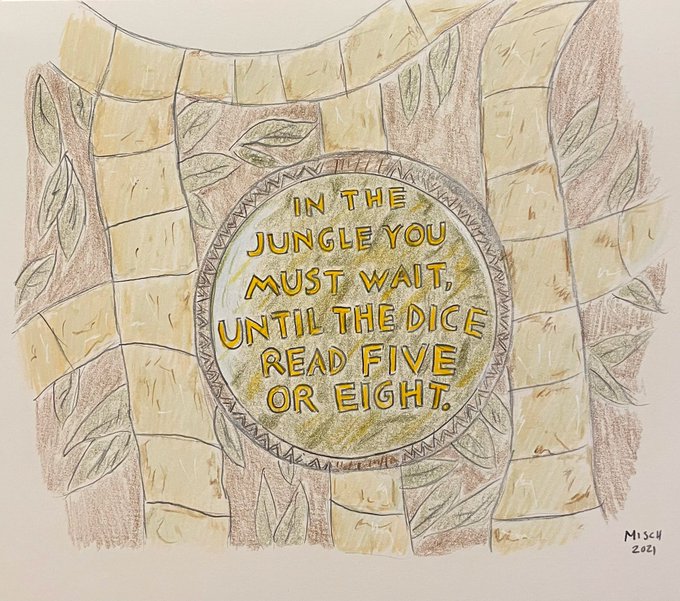 IN THE
JUNGLE YOU
MUST WAIT,
UNTIL THE DICE
READ FIVE
OR EIGHT.
MISCH
2021